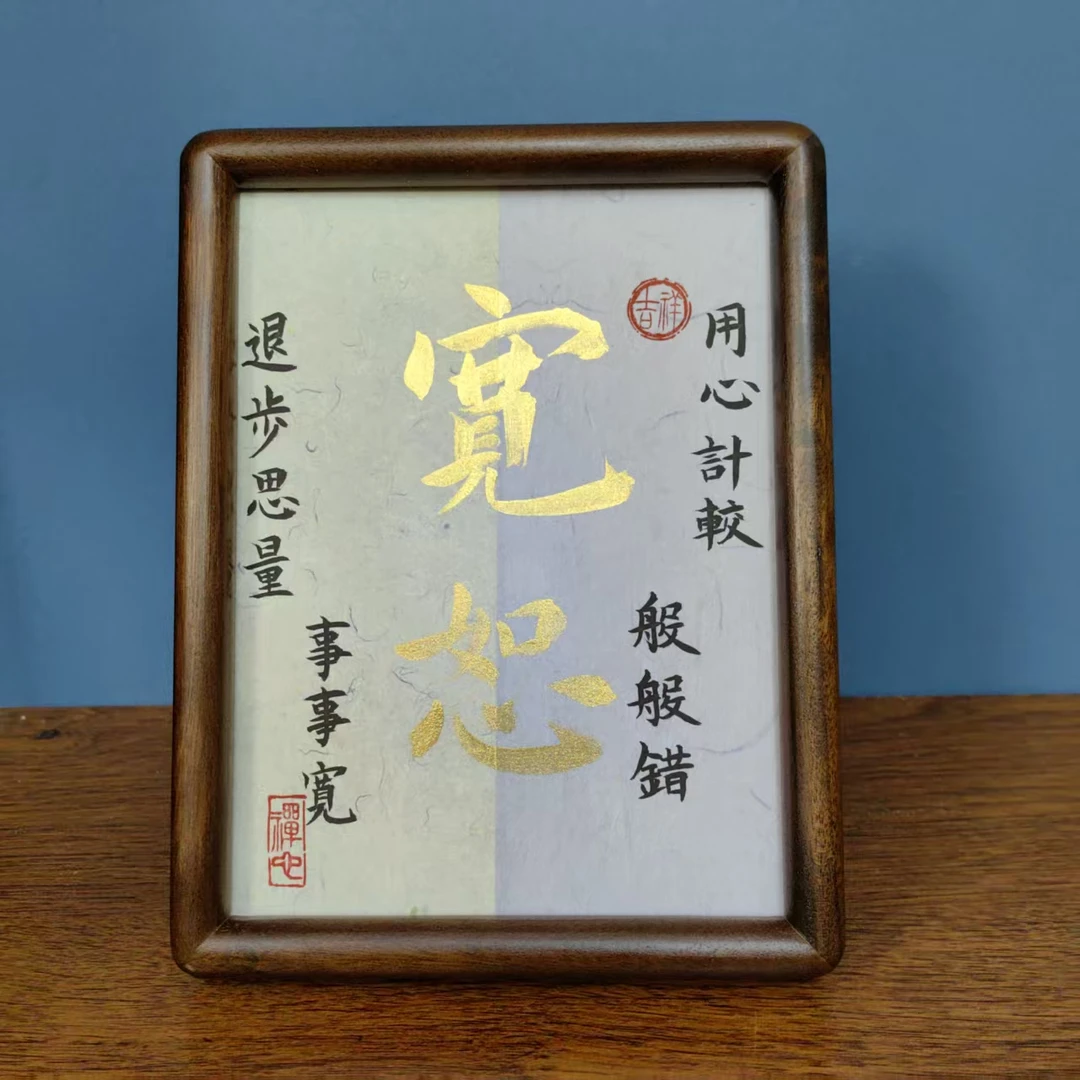 吉祥
用心計較
般般錯
寬恕
退步思量
事事寬
禪心